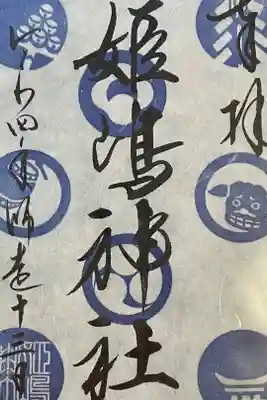 奉拝
姫嶋神社
令和四年師走十一日